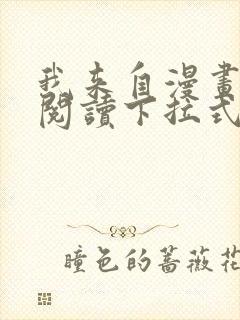 我来自漫畫
閱讀下拉式
瞳色的蔷薇花